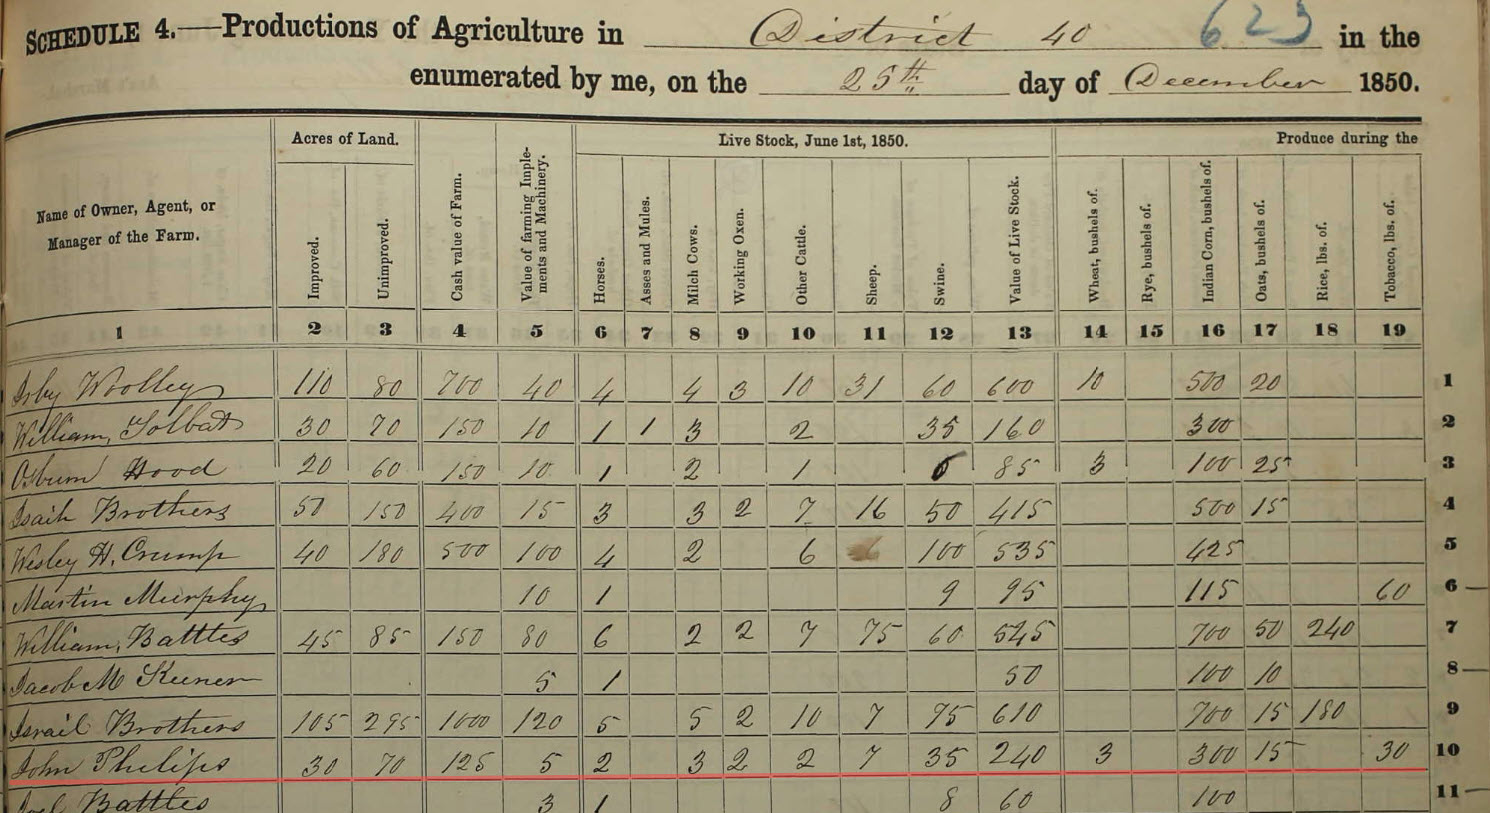 SCHEDULE 4.—Productions of Agriculture in District 40 623 in the
enumerated by me, on the 25th day of December 1850.
Name of Owner, Agent, or Manager of the Farm.
Acres of Land.
Improved.
Unimproved.
Cash value of Farm.
Value of farming Imple-
ments and Machinery.
Live Stock, June 1st, 1850.
Horses.
Asses and Mules.
Milch Cows.
Working Oxen.
Other Cattle.
Sheep.
Swine.
Value of Live Stock.
Produce during the
Wheat, bushels of.
Rye, bushels of.
Indian Corn, bushels of.
Oats, bushels of.
Rice, lbs. of.
Tobacco, lbs. of.
1 2 3 4 5 6 7 8 9 10 11 12 13 14 15 16 17 18 19
Irby Woolley 110 80 700 40 4 4 3 10 31 60 600 10 500 20 1
William, Tolbat 30 70 150 10 1 1 3 2 35 160 300 2
Osburn Hood 20 60 150 10 1 2 1 6 85 3 100 25 3
Isaih Brothers 50 150 400 15 3 3 2 7 16 50 415 500 15 4
Wesley H. Crump 40 180 500 100 4 2 6 100 535 425 5
Martin Murphy 10 1 9 95 115 60 6
William, Battles 45 85 150 80 6 2 2 7 75 60 545 700 50 240 7
Jacob M Keener 5 1 50 100 10 8
Israil Brothers 105 295 1000 120 5 5 2 10 7 75 610 700 15 180 9
John Philips 30 70 125 5 2 3 2 2 7 35 240 3 300 15 30 10
Joel Battles 3 1 8 60 100 11